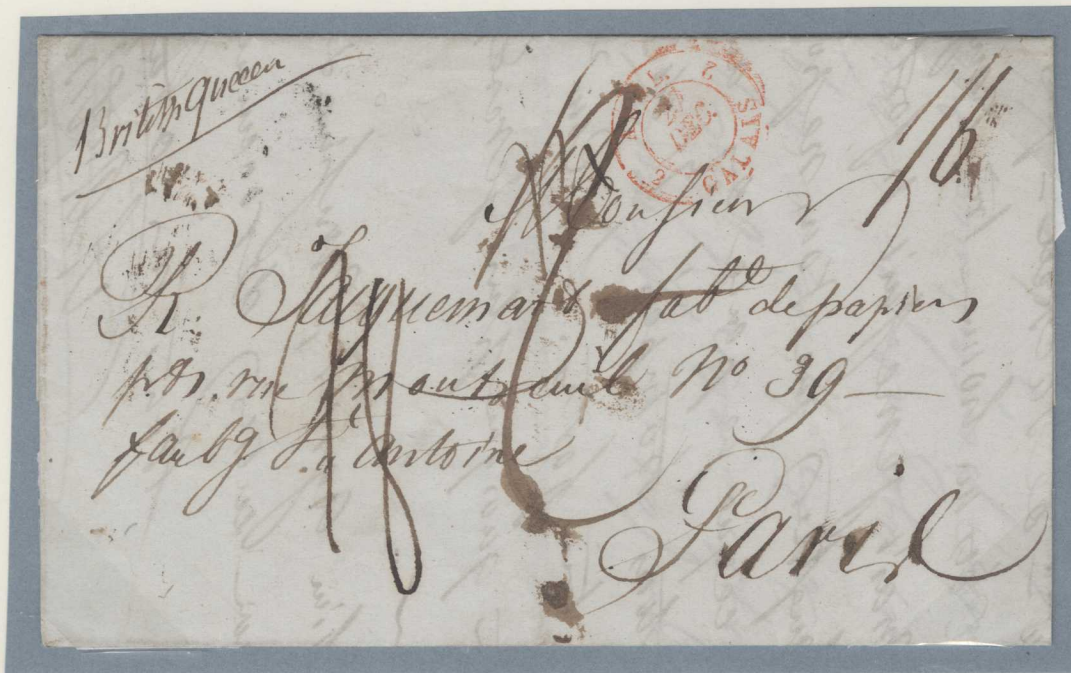 British queen
CALAIS 2
1/6
Monsieur
R. Jacquemart fabt de papiers
pts. rue Montreuil No 39 —
faubg St antoine
Paris